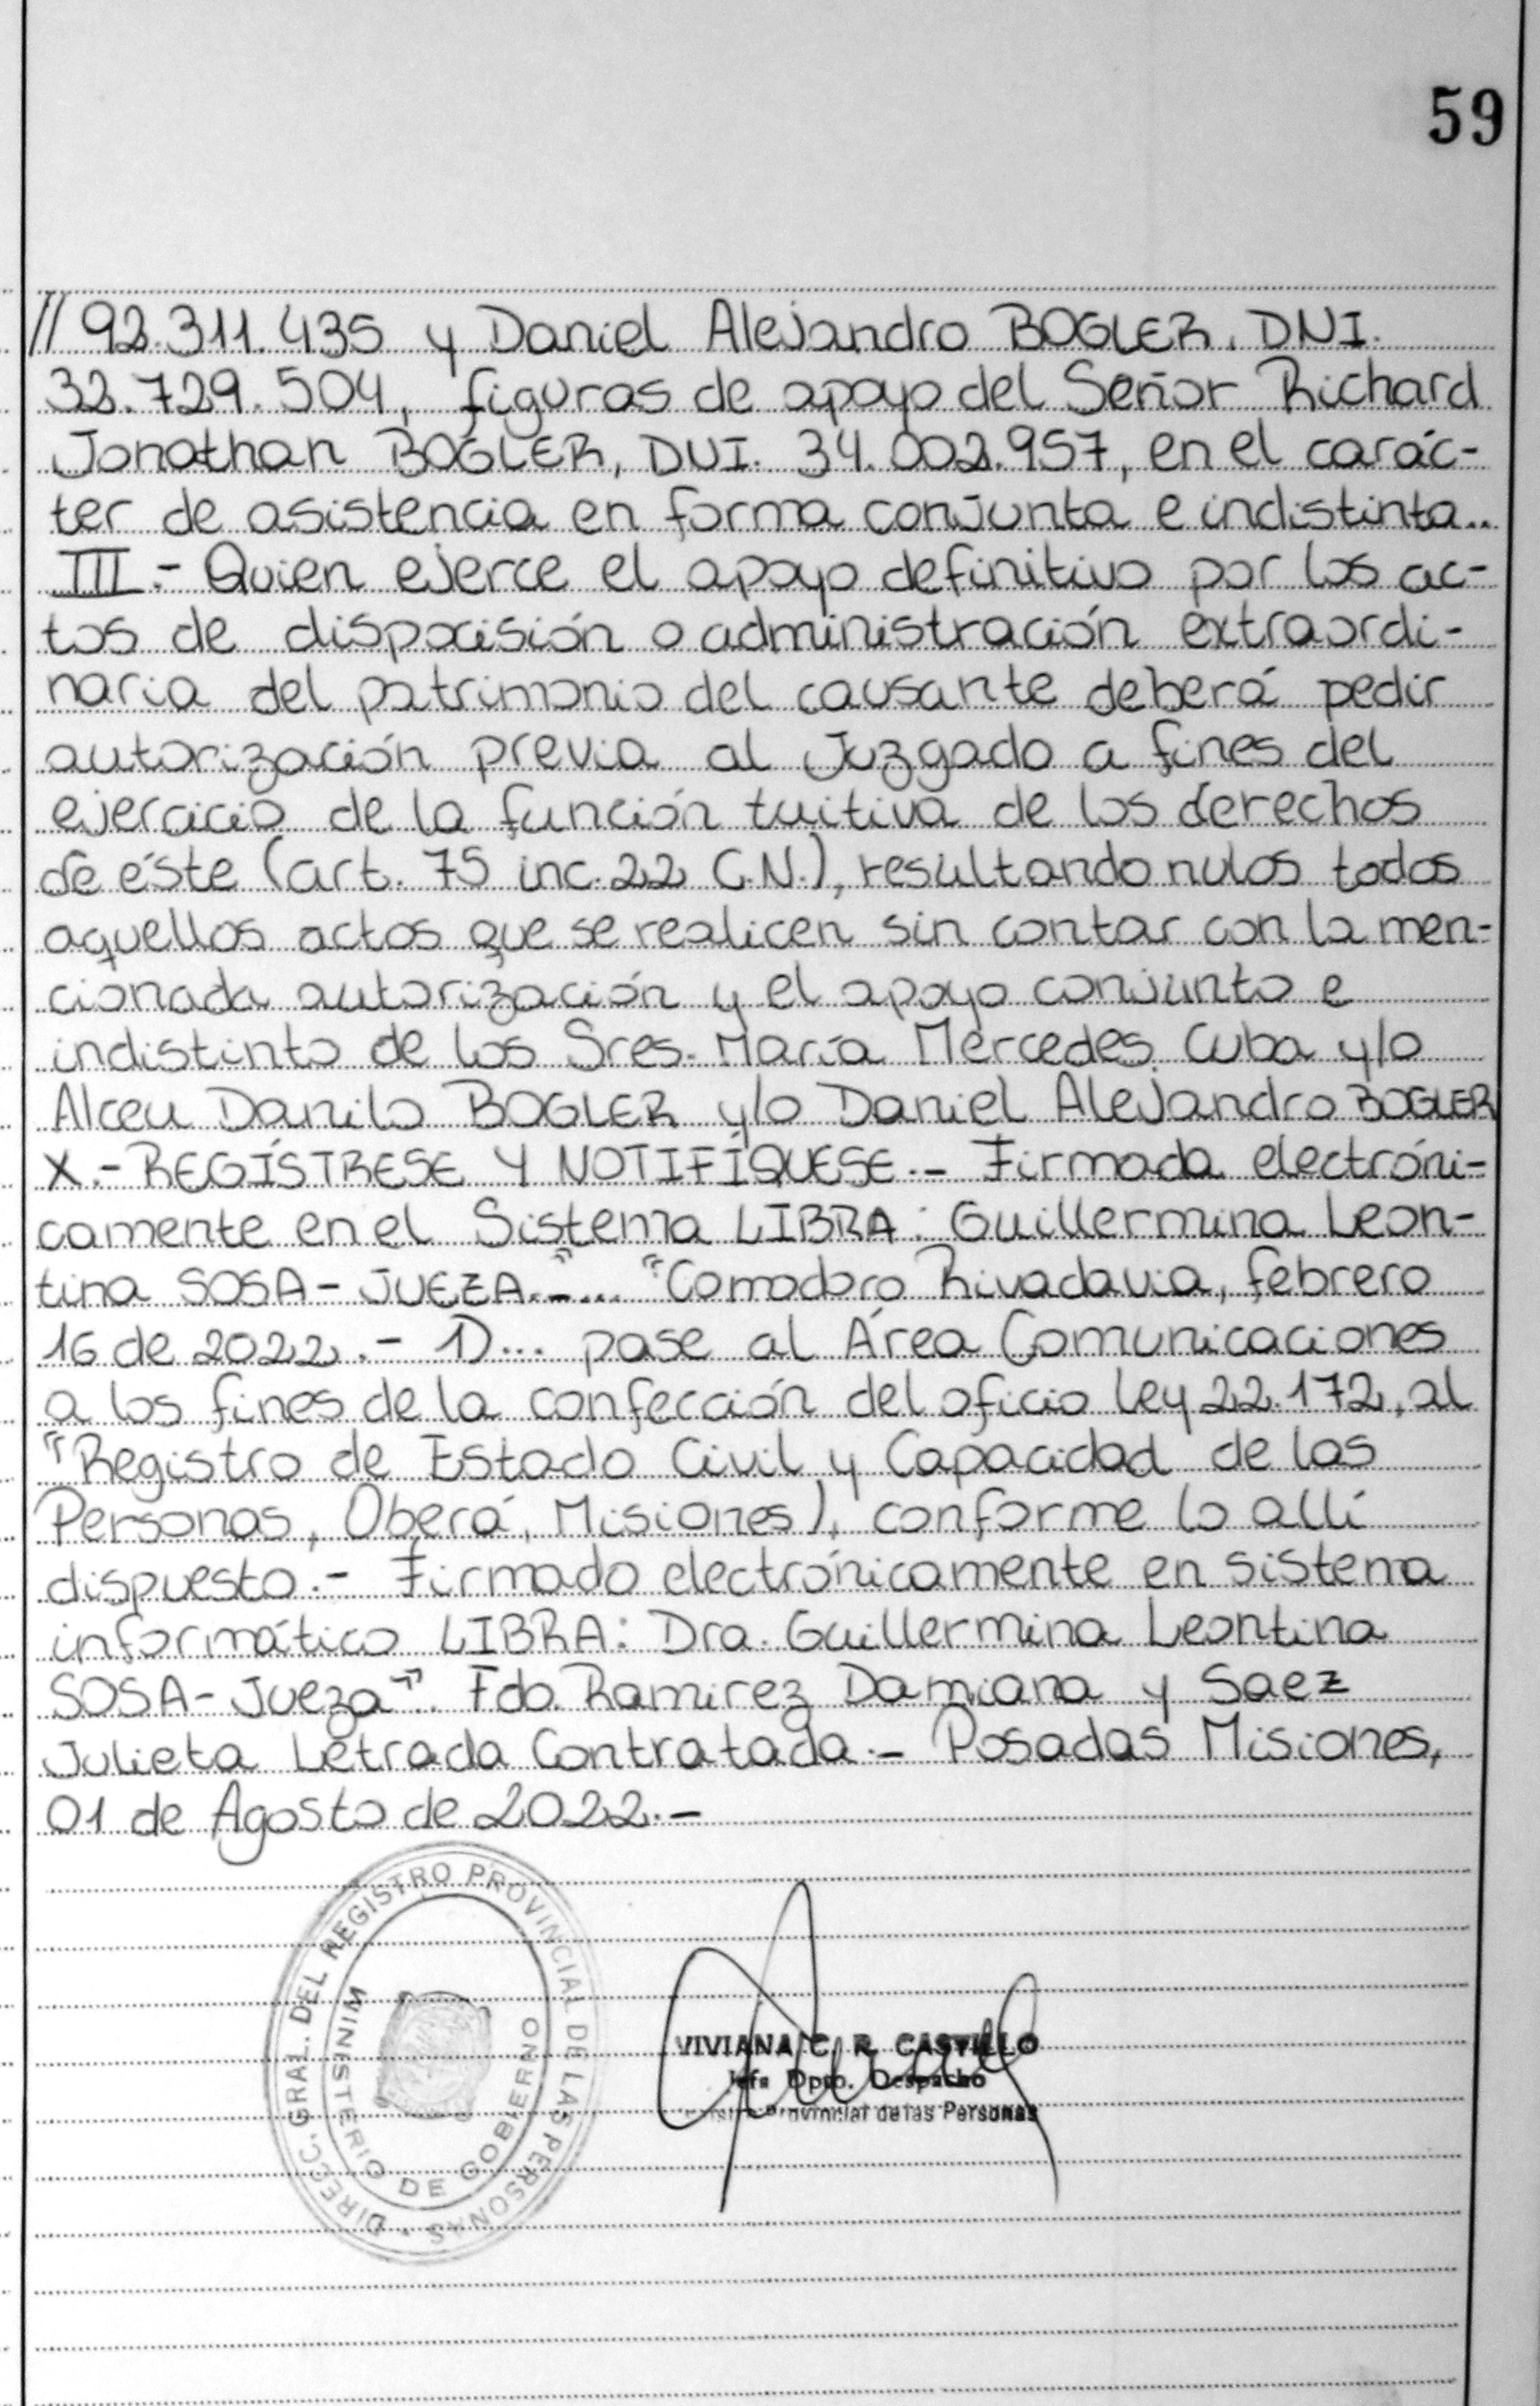 59
// 92.311.435 y Daniel Alejandro BOGLER, DNI.
32.729.504, figuras de apoyo del Señor Richard
Jonathan BOGLER, DNI. 34.002.957, en el carác-
ter de asistencia en forma conjunta e indistinta..
III.- Quien ejerce el apoyo definitivo por los ac-
tos de dispocisión o administración extraordi-
naria del patrimonio del causante deberá pedir
autorización previa al Juzgado a fines del
ejercicio de la función tuitiva de los derechos
de éste (art. 75 inc. 22 C.N.), resultando nulos todos
aquellos actos que se realicen sin contar con la men-
cionada autorización y el apoyo conjunto e
indistinto de los Sres. María Mercedes Cuba y/o
Alceu Danilo BOGLER y/o Daniel Alejandro BOGLER
X.- REGÍSTRESE Y NOTIFÍQUESE.- Firmada electróni-
camente en el Sistema LIBRA: Guillermina Leon-
tina SOSA - JUEZA.-"... "Comodoro Rivadavia, febrero
16 de 2022.- 1)... pase al Área Comunicaciones
a los fines de la confección del oficio ley 22.172, al
"Registro de Estado Civil y Capacidad de las
Personas, Oberá, Misiones), conforme lo allí
dispuesto.- Firmado electrónicamente en sistema
informático LIBRA: Dra. Guillermina Leontina
SOSA - Jueza". Fdo. Ramirez Damiana y Saez
Julieta Letrada Contratada.- Posadas Misiones,
01 de Agosto de 2022.-
DIRECC. GRAL. DEL REGISTRO PROVINCIAL DE LAS PERSONAS
MINISTERIO DE GOBIERNO
VIVIANA C. R. CASTILLO
Jefa Dpto. Despacho
Provincial de las Personas